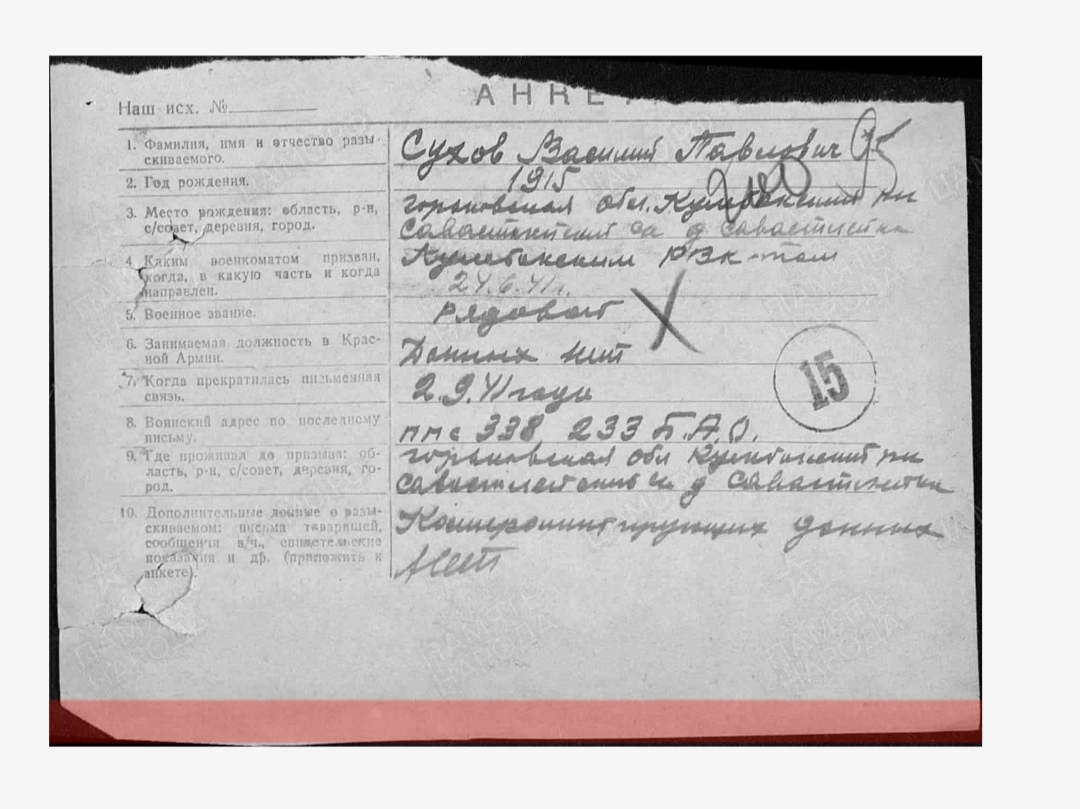 АНКЕ
Наш исх. №
1. Фамилия, имя и отчество разы-
скиваемого.
Сухов Василий Павлович
2. Год рождения.
1915
3. Место рождения: область, р-н,
с/совет, деревня, город.
Горьковская обл. Кулебакский рн
Савастлейский са д Савастлейка
4. Каким военкоматом призван,
когда, в какую часть и когда
направлен.
Кулебакским РВК-том
24.6.41г.
5. Военное звание.
рядовой
6. Занимаемая должность в Крас-
ной Армии.
Данных нет
7. Когда прекратилась письменная
связь.
2.9.41 года
8. Воинский адрес по последнему
письму.
ппс 338 233 Б.А.О.
9. Где проживал до призыва: об-
ласть, р-н, с/совет, деревня, го-
род.
Горьковская обл Кулебакский рн
Савастлейский са д Савастлейка
10. Дополнительные данные о разы-
скиваемом: письма товарищей,
сообщения в/ч., свидетельские
показания и др. (приложить к
анкете).
Компрометирующих данных
нет
15
ПАМЯТЬ
НАРОДА